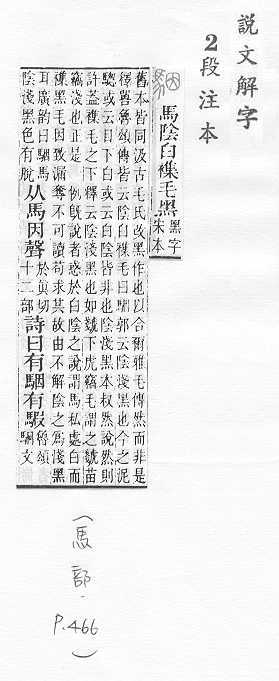 說文解字
2段注本
駰
馬陰白襍毛黑黑字宋本
舊本皆同汲古毛氏改黑作也以合爾雅毛傳然而非是
釋嘼魯頌傳皆云陰白襍毛曰駰郭云陰淺黑也今之泥
驄或云目下白或云白陰皆非也陰淺黑本叔然說然則
許葢襍毛之下釋云陰淺黑也如虦下虎竊毛謂之虦苗
竊淺也正是一例旣說者惑於白陰之說謂馬私處白而
襍黑毛因致漏奪不可讀苟求其故由不解陰之爲淺黑
耳廣韵曰駰馬陰淺黑色有脫从馬因聲於眞切十二部詩曰有駰有騢魯頌駉文
(馬部.P.466)